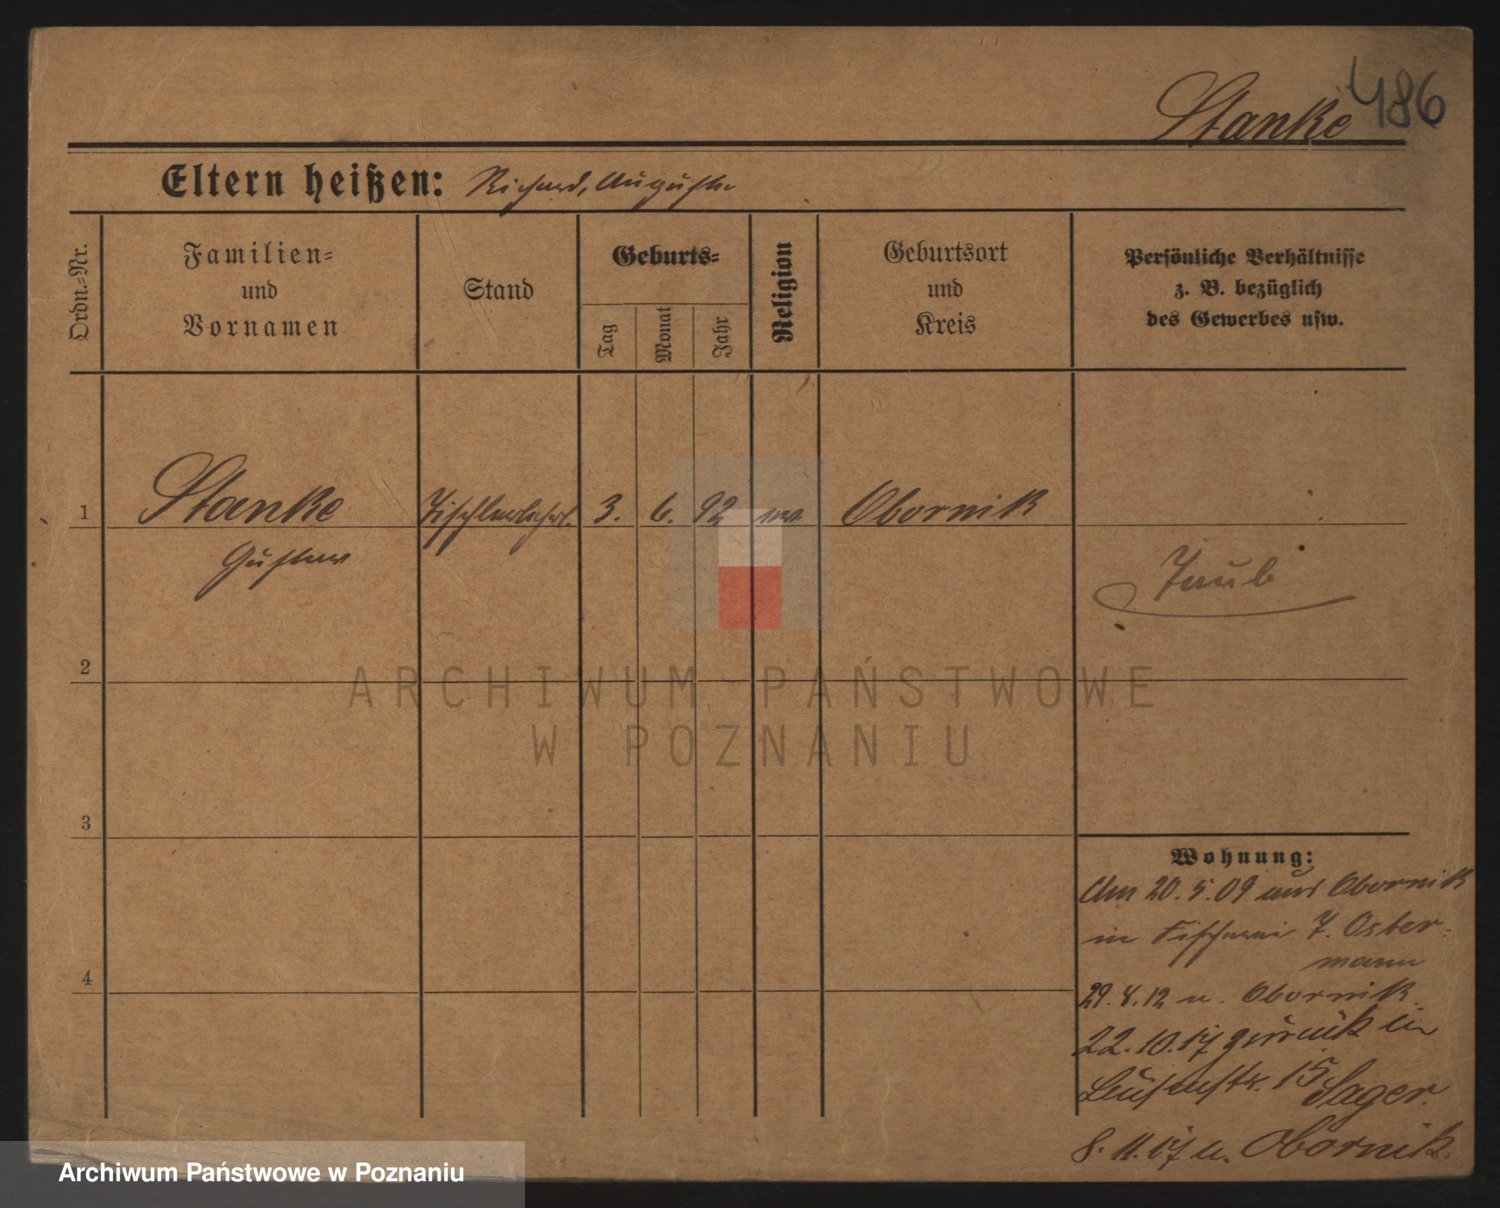 486
Stanke
Eltern heißen: Richard, Auguste
Ordn.-Nr.
Familien-
und
Vornamen
Stand
Geburts-
Tag
Monat
Jahr
Religion
Geburtsort
und
Kreis
Persönliche Verhältnisse
z. B. bezüglich
des Gewerbes usw.
1
Stanke
Tischlerlehrl.
3.
6.
92
ev
Obornik
Gustav
Taub
2
ARCHIWUM PAŃSTWOWE
W POZNANIU
3
Wohnung:
Am 20.5.09 aus Obornik
in Fischerei 7. Oster-
mann
4
29.8.12 n. Obornik.
22.10.17 zurück in
Luisenstr. 15 Sager.
8.11.17 n. Obornik.
Archiwum Państwowe w Poznaniu